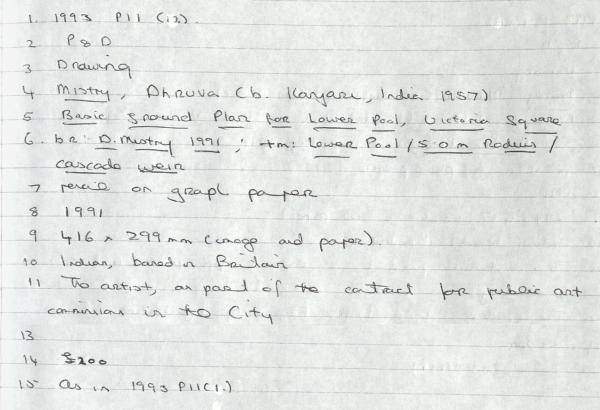 1. 1993 P11 (12).
2 P & D
3 Drawing
4 Mistry, Dhruva (b. Kanjari, India 1957)
5 Basic Ground Plan for Lower Pool, Victoria Square
6. br: D. Mistry 1991; tm: Lower Pool / 5.0 m Radius /
cascade weir
7 pencil on graph paper
8 1991
9 416 x 299 mm (image and paper).
10 Indian, based in Britain
11 The artist, as part of the contract for public art
commissions in the City
13
14 £200
15 As in 1993 P11 (1.)